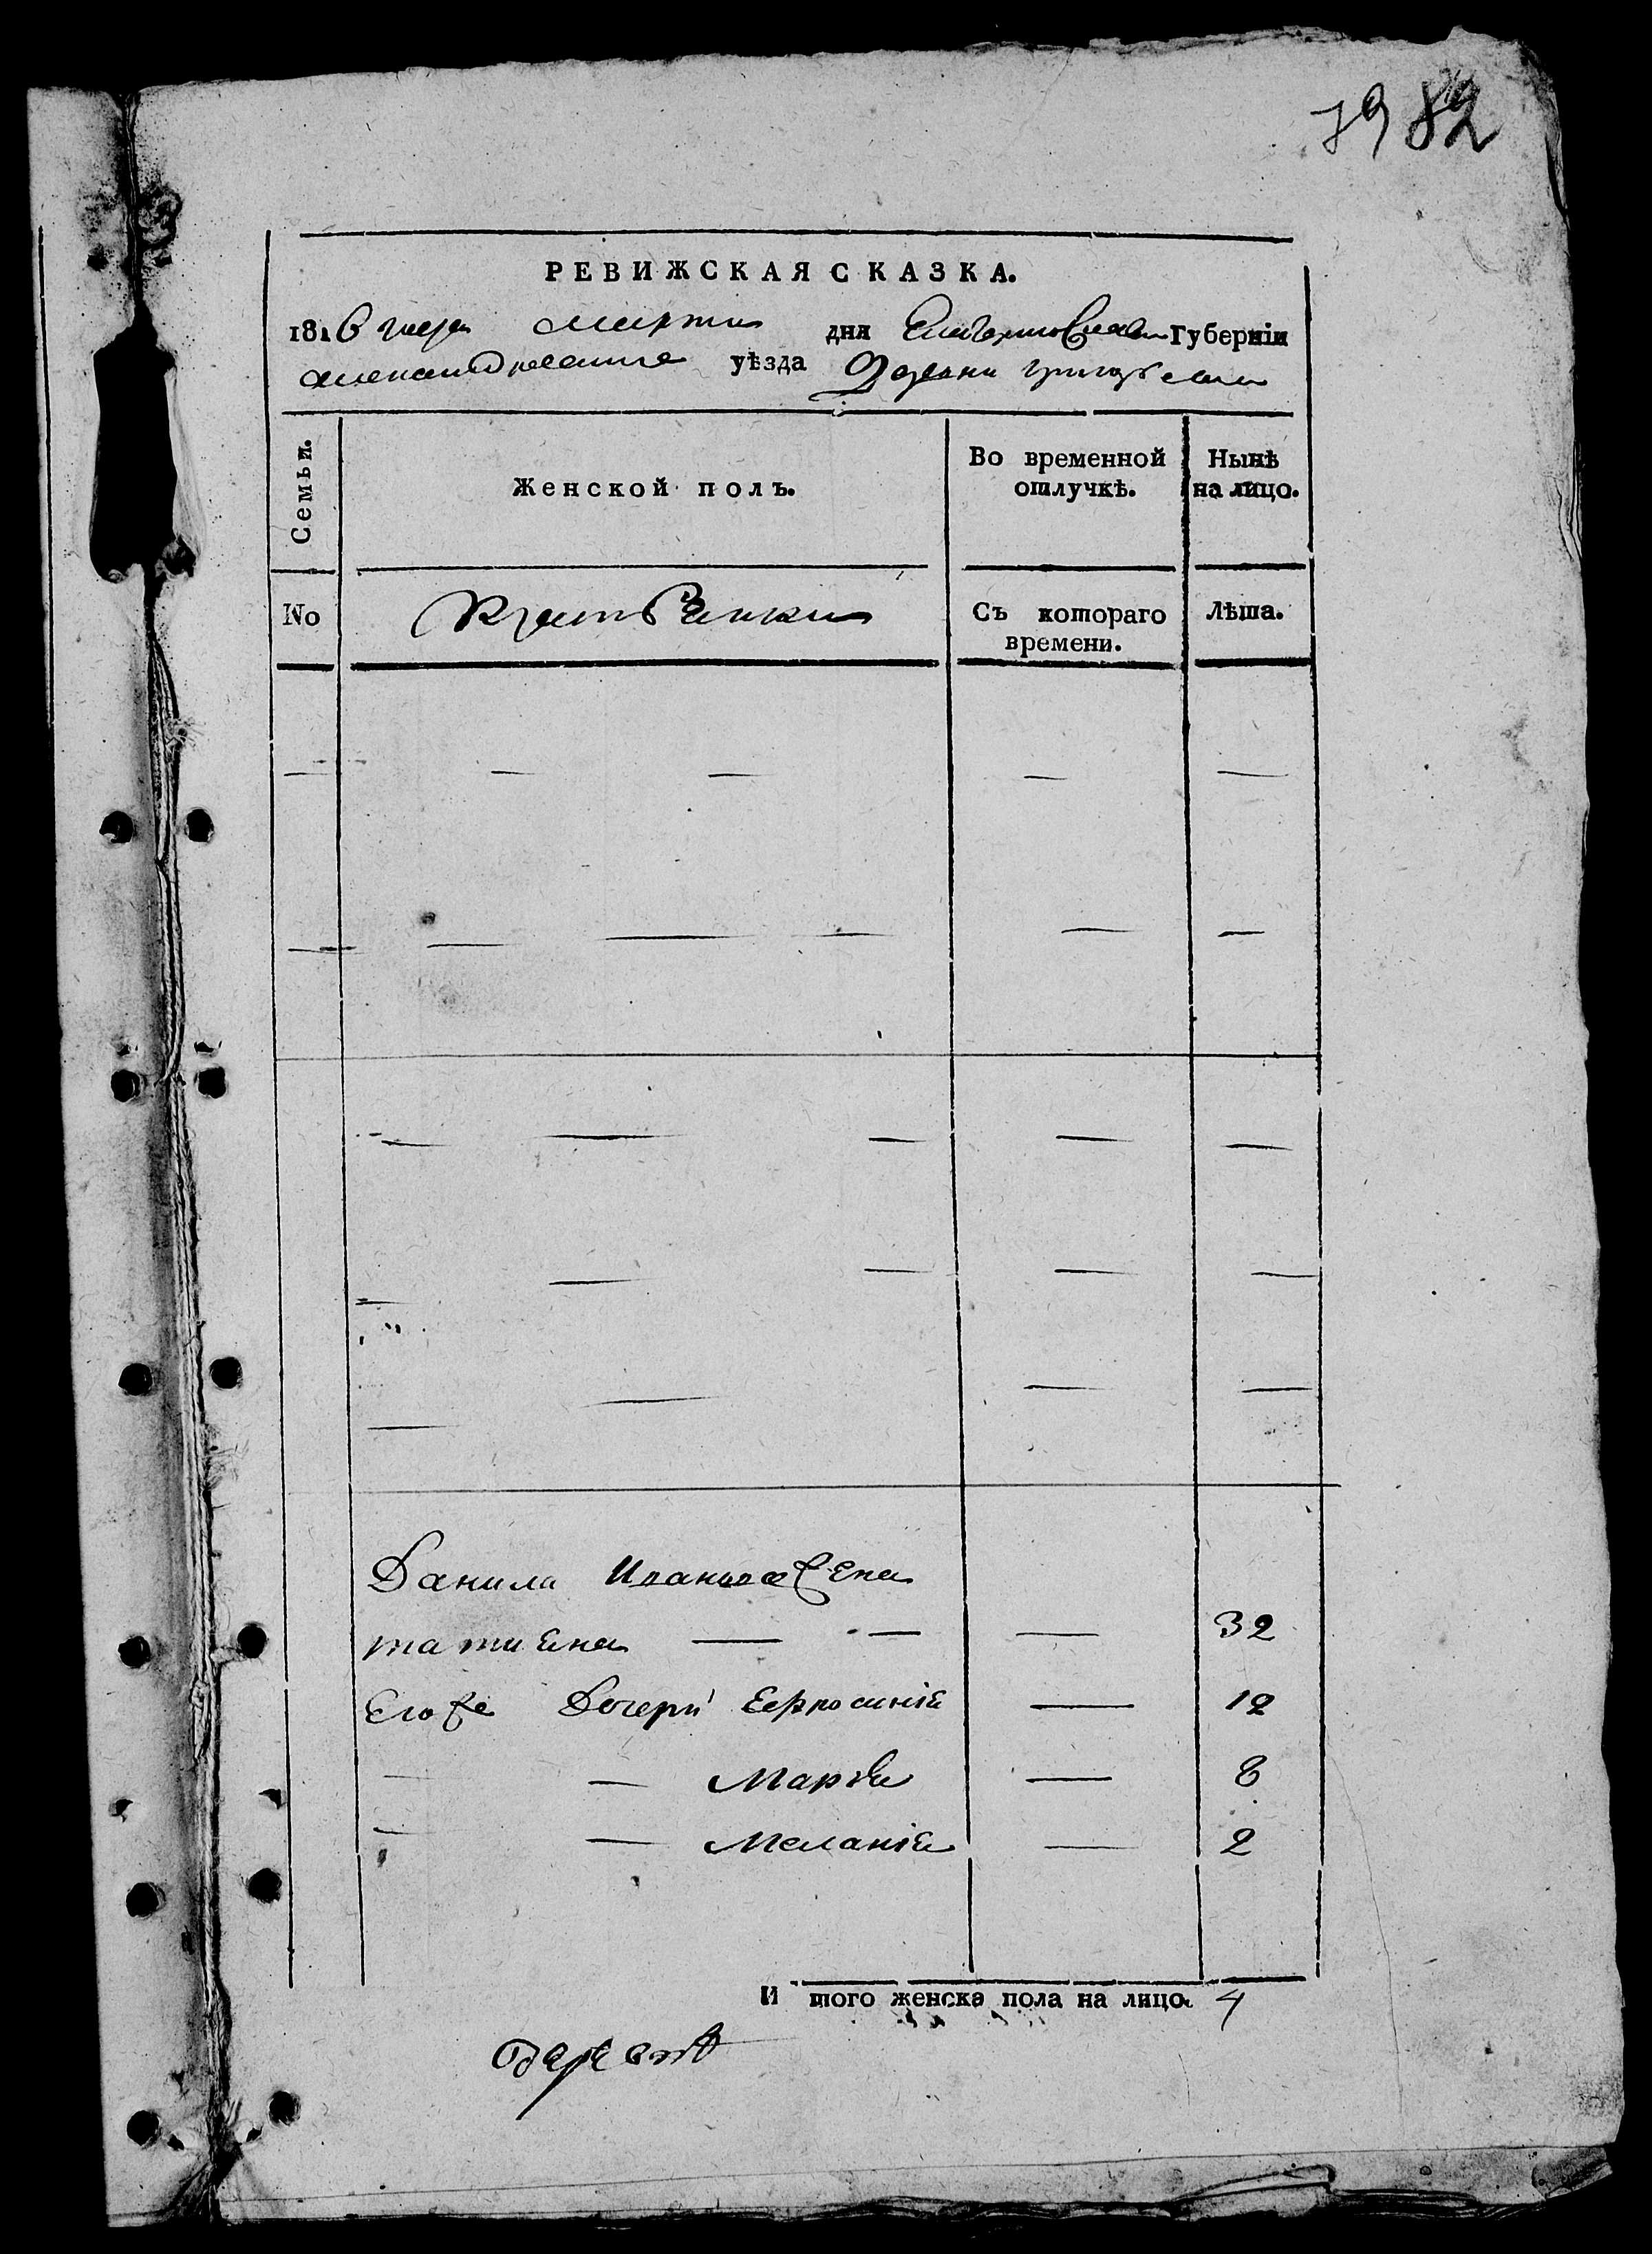 79 82
РЕВИЖСКАЯ СКАЗКА.
1816 года марта дня Екатериносла Губерніи
александровского уѣзда
Семьи.
Женской полъ.
Во временной отлучкѣ.
Нынѣ на лицо.
No
Крестьянки
Съ котораго времени.
Лѣта.
Данила Иванова Жена
татиана — — — 32
Егоже Дочери Ефросиніа — 12
— — Марѳа — 8
— — Меланіа — 2
И того женска пола на лицо. 4